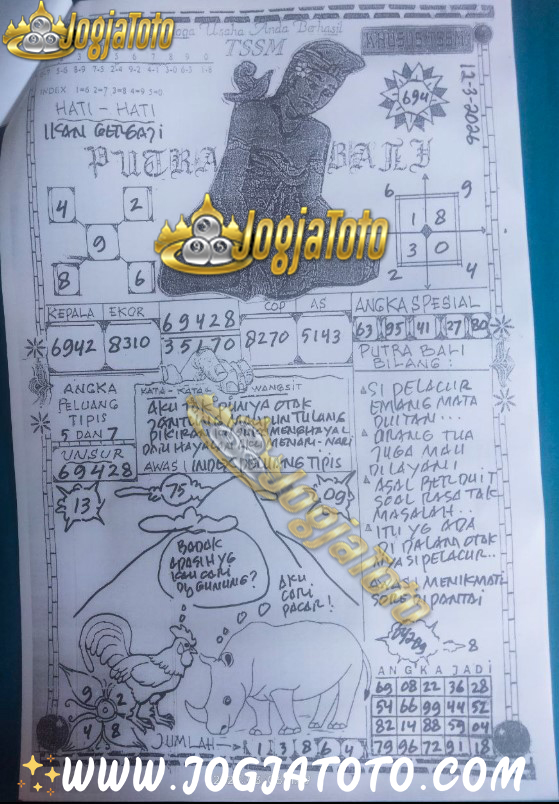 JogjaToto
Usaha Anda Berhasil
TSSM
INDEX 1=6 2=7 3=8 4=9 5=0
HATI - HATI
IKAN GERGAJI
PUTRA BALI
694
12-3-2026
4 2
9
8 6
6 9
1 8
3 0
2 4
JogjaToto
KEPALA EKOR 69428 COP AS ANGKA SPESIAL
6942 8310 35170 8270 5143 63 95 41 27 80
PUTRA BALI
BILANG :
ANGKA
PELUANG
TIPIS
5 DAN 7
UNSUR
69428
KATA - KATA WANGSIT
AKU TAK PUNYA OTAK
JANTUNG MAUPUN TULANG
MENGHAYAL
MENARI-NARI
AWAS! INDEX PELUANG TIPIS
SI PELACUR
EMANG MATA
DUITAN...
ORANG TUA
JUGA MAU
DILAYANI
ASAL BERDUIT
SOAL RASA TAK
MASALAH..
ITU YG ADA
DI DALAM OTAK
NYA SI PELACUR..
MENIKMATI
SORE DI PANTAI
13
75
09
JogjaToto
BADAK
APASIH YG
KAU CARI
DI GUNUNG?
AKU
CARI
PACAR!
8
9 2
4 8
ANGKA JADI
69 08 22 36 28
54 66 99 44 52
82 14 88 59 04
79 96 72 91 18
JUMLAH 1 3 8 6 4
WWW.JOGJATOTO.COM